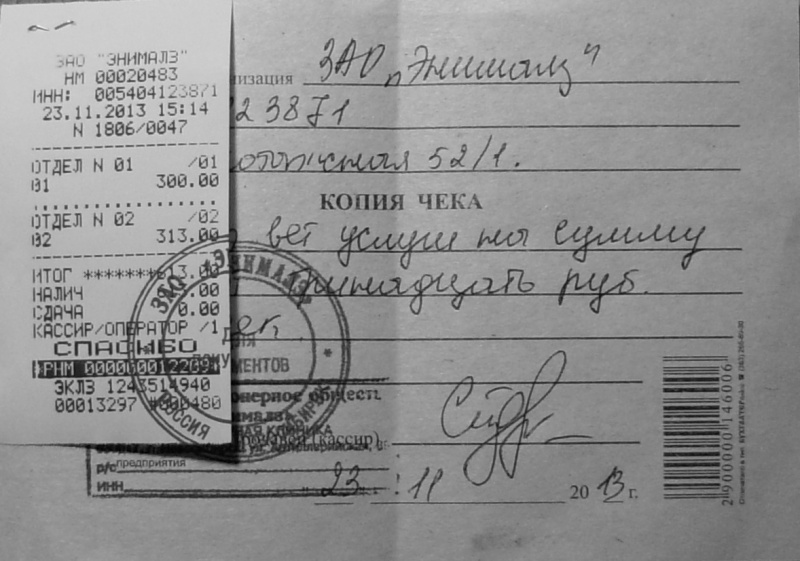 ЗАО "ЭНИМАЛЗ"
НМ 00020483
ИНН: 005404123871
23.11.2013 15:14
N 1806/0047
ОТДЕЛ N 01 /01
01 300.00
ОТДЕЛ N 02 /02
02 313.00
ИТОГ *******613.00
НАЛИЧ .00
СДАЧА 0.00
КАССИР/ОПЕРАТОР /1
СПАСИБО
РНМ 000000012209
ЭКЛЗ 1243514940
00013297 #000480
низация ЗАО „Энималз"
23871
52/1.
КОПИЯ ЧЕКА
вет услуги на сумму
тринадцать руб.
ЗАО "ЭНИМАЛЗ"
ДЛЯ
ДОКУМЕНТОВ
РОССИЯ
нерное общест
НАЯ КЛИНИКА
(кассир)
предприятия
р/с
инн
23 11 2013 г.
2900000146006